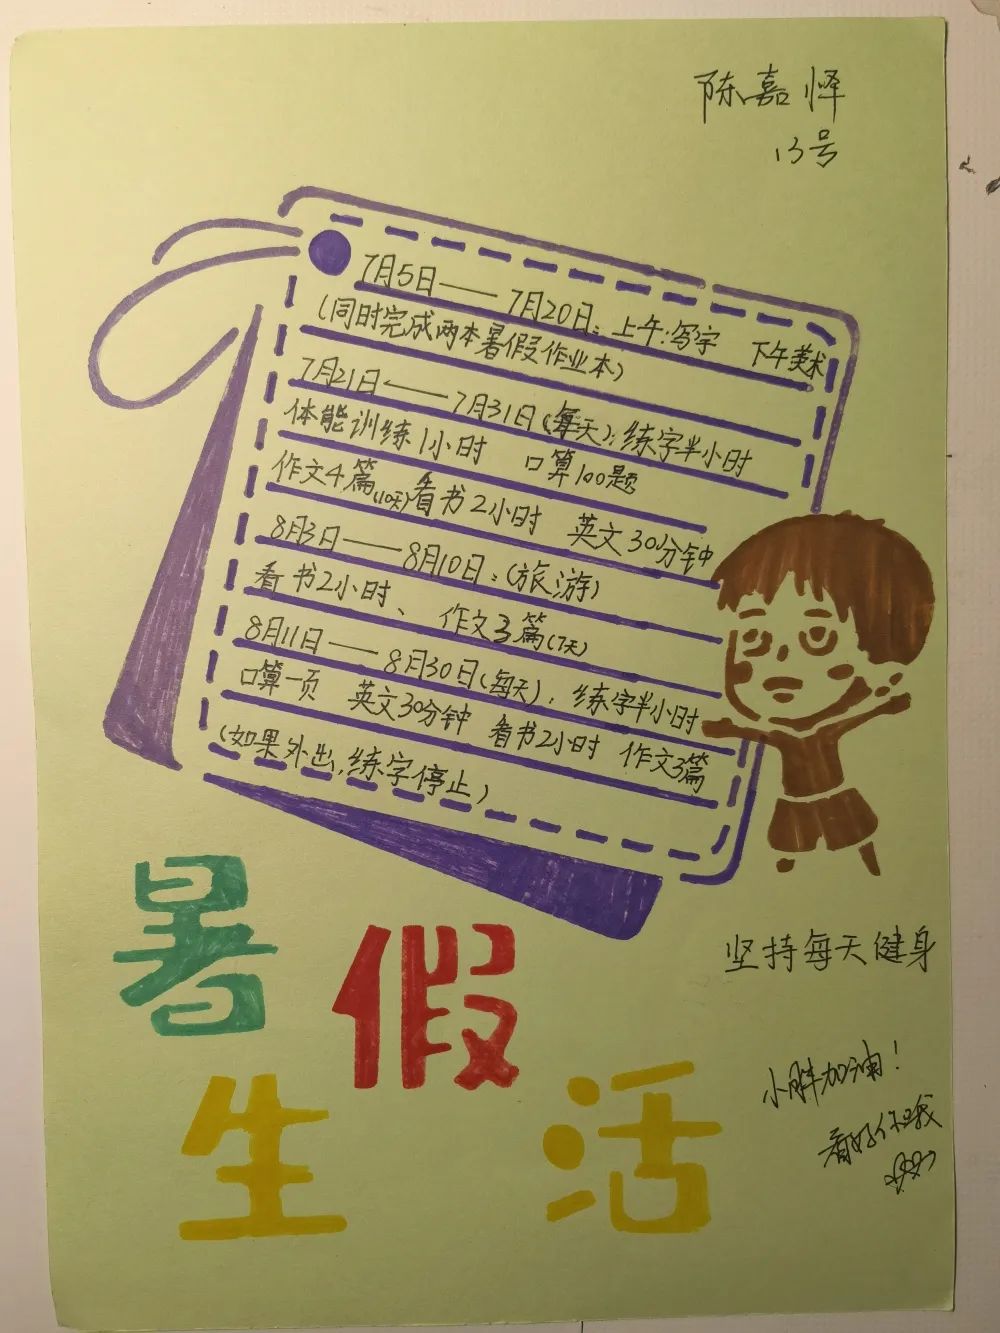 陈嘉怿
13号
7月5日——7月20日：上午:写字 下午美术
(同时完成两本暑假作业本)
7月21日——7月31日(每天):练字半小时
体能训练1小时 口算100题
作文4篇(10天)看书2小时 英文30分钟
8月3日——8月10日：(旅游)
看书2小时、 作文3篇(7天)
8月11日——8月30日(每天)：练字半小时
口算一页 英文30分钟 看书2小时 作文3篇
(如果外出,练字停止)
暑假
生活
坚持每天健身
小胖加油!
看好你哦